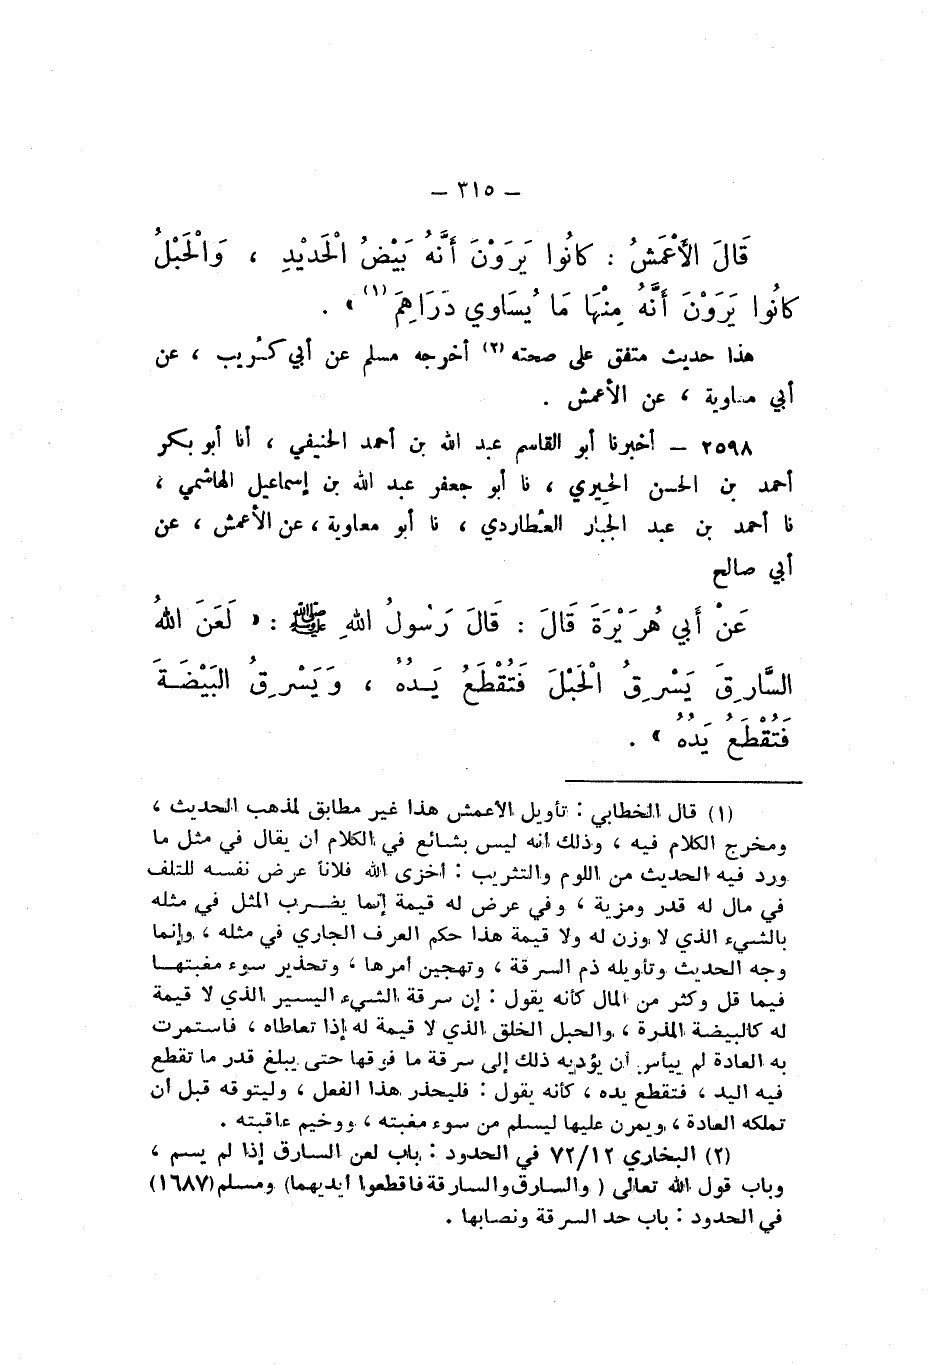 – ٣١٥ –
قَالَ الأَعْمَشُ : كَانُوا يَرَوْنَ أَنَّهُ بَيْضُ الْحَدِيْدِ ، وَالْحَبْلُ
كَانُوا يَرَوْنَ أَنَّهُ مِنْهَا مَا يُسَاوِي دَرَاهِمَ (١) » .
هذا حديث متفق على صحته (٢) أخرجه مسلم عن أبي كُريب ، عن
أبي معاوية ، عن الأعمش .
٢٥٩٨ – أخبرنا أبو القاسم عبد الله بن أحمد الحنيفي ، أنا أبو بكر
أحمد بن الحسن الحِيري ، نا أبو جعفر عبد الله بن إسماعيل الهاشمي ،
نا أحمد بن عبد الجبار العُطاردي ، نا أبو معاوية ، عن الأعمش ، عن
أبي صالح
عَنْ أَبِي هُرَيْرَةَ قَالَ : قَالَ رَسُولُ اللهِ ﷺ : « لَعَنَ اللهُ
السَّارِقَ يَسْرِقُ الْحَبْلَ فَتُقْطَعُ يَدُهُ ، وَيَسْرِقُ البَيْضَةَ
فَتُقْطَعُ يَدُهُ » .
(١) قال الخطابي : تأويل الأعمش هذا غير مطابق لمذهب الحديث ،
ومخرج الكلام فيه ، وذلك أنه ليس بشائع في الكلام أن يقال في مثل ما
ورد فيه الحديث من اللوم والتثريب : أخزى الله فلاناً عرض نفسه للتلف
في مال له قدر ومزية ، وفي عرض له قيمة إنما يضرب المثل في مثله
بالشيء الذي لا وزن له ولا قيمة هذا حكم العرف الجاري في مثله ، وإنما
وجه الحديث وتأويله ذم السرقة ، وتهجين أمرها ، وتحذير سوء مغبتها
فيما قل وكثر من المال كأنه يقول : إن سرقة الشيء اليسير الذي لا قيمة
له كالبيضة المذرة ، والحبل الخلق الذي لا قيمة له إذا تعاطاه ، فاستمرت
به العادة لم ييأس أن يؤديه ذلك إلى سرقة ما فوقها حتى يبلغ قدر ما تقطع
فيه اليد ، فتقطع يده ، كأنه يقول : فليحذر هذا الفعل ، وليتوقه قبل أن
تملكه العادة ، ويمرن عليها ليسلم من سوء مغبته ، ووخيم عاقبته .
(٢) البخاري ٧٢/١٢ في الحدود : باب لعن السارق إذا لم يسم ،
وباب قول الله تعالى ( والسارق والسارقة فاقطعوا أيديهما) ومسلم (١٦٨٧)
في الحدود : باب حد السرقة ونصابها .